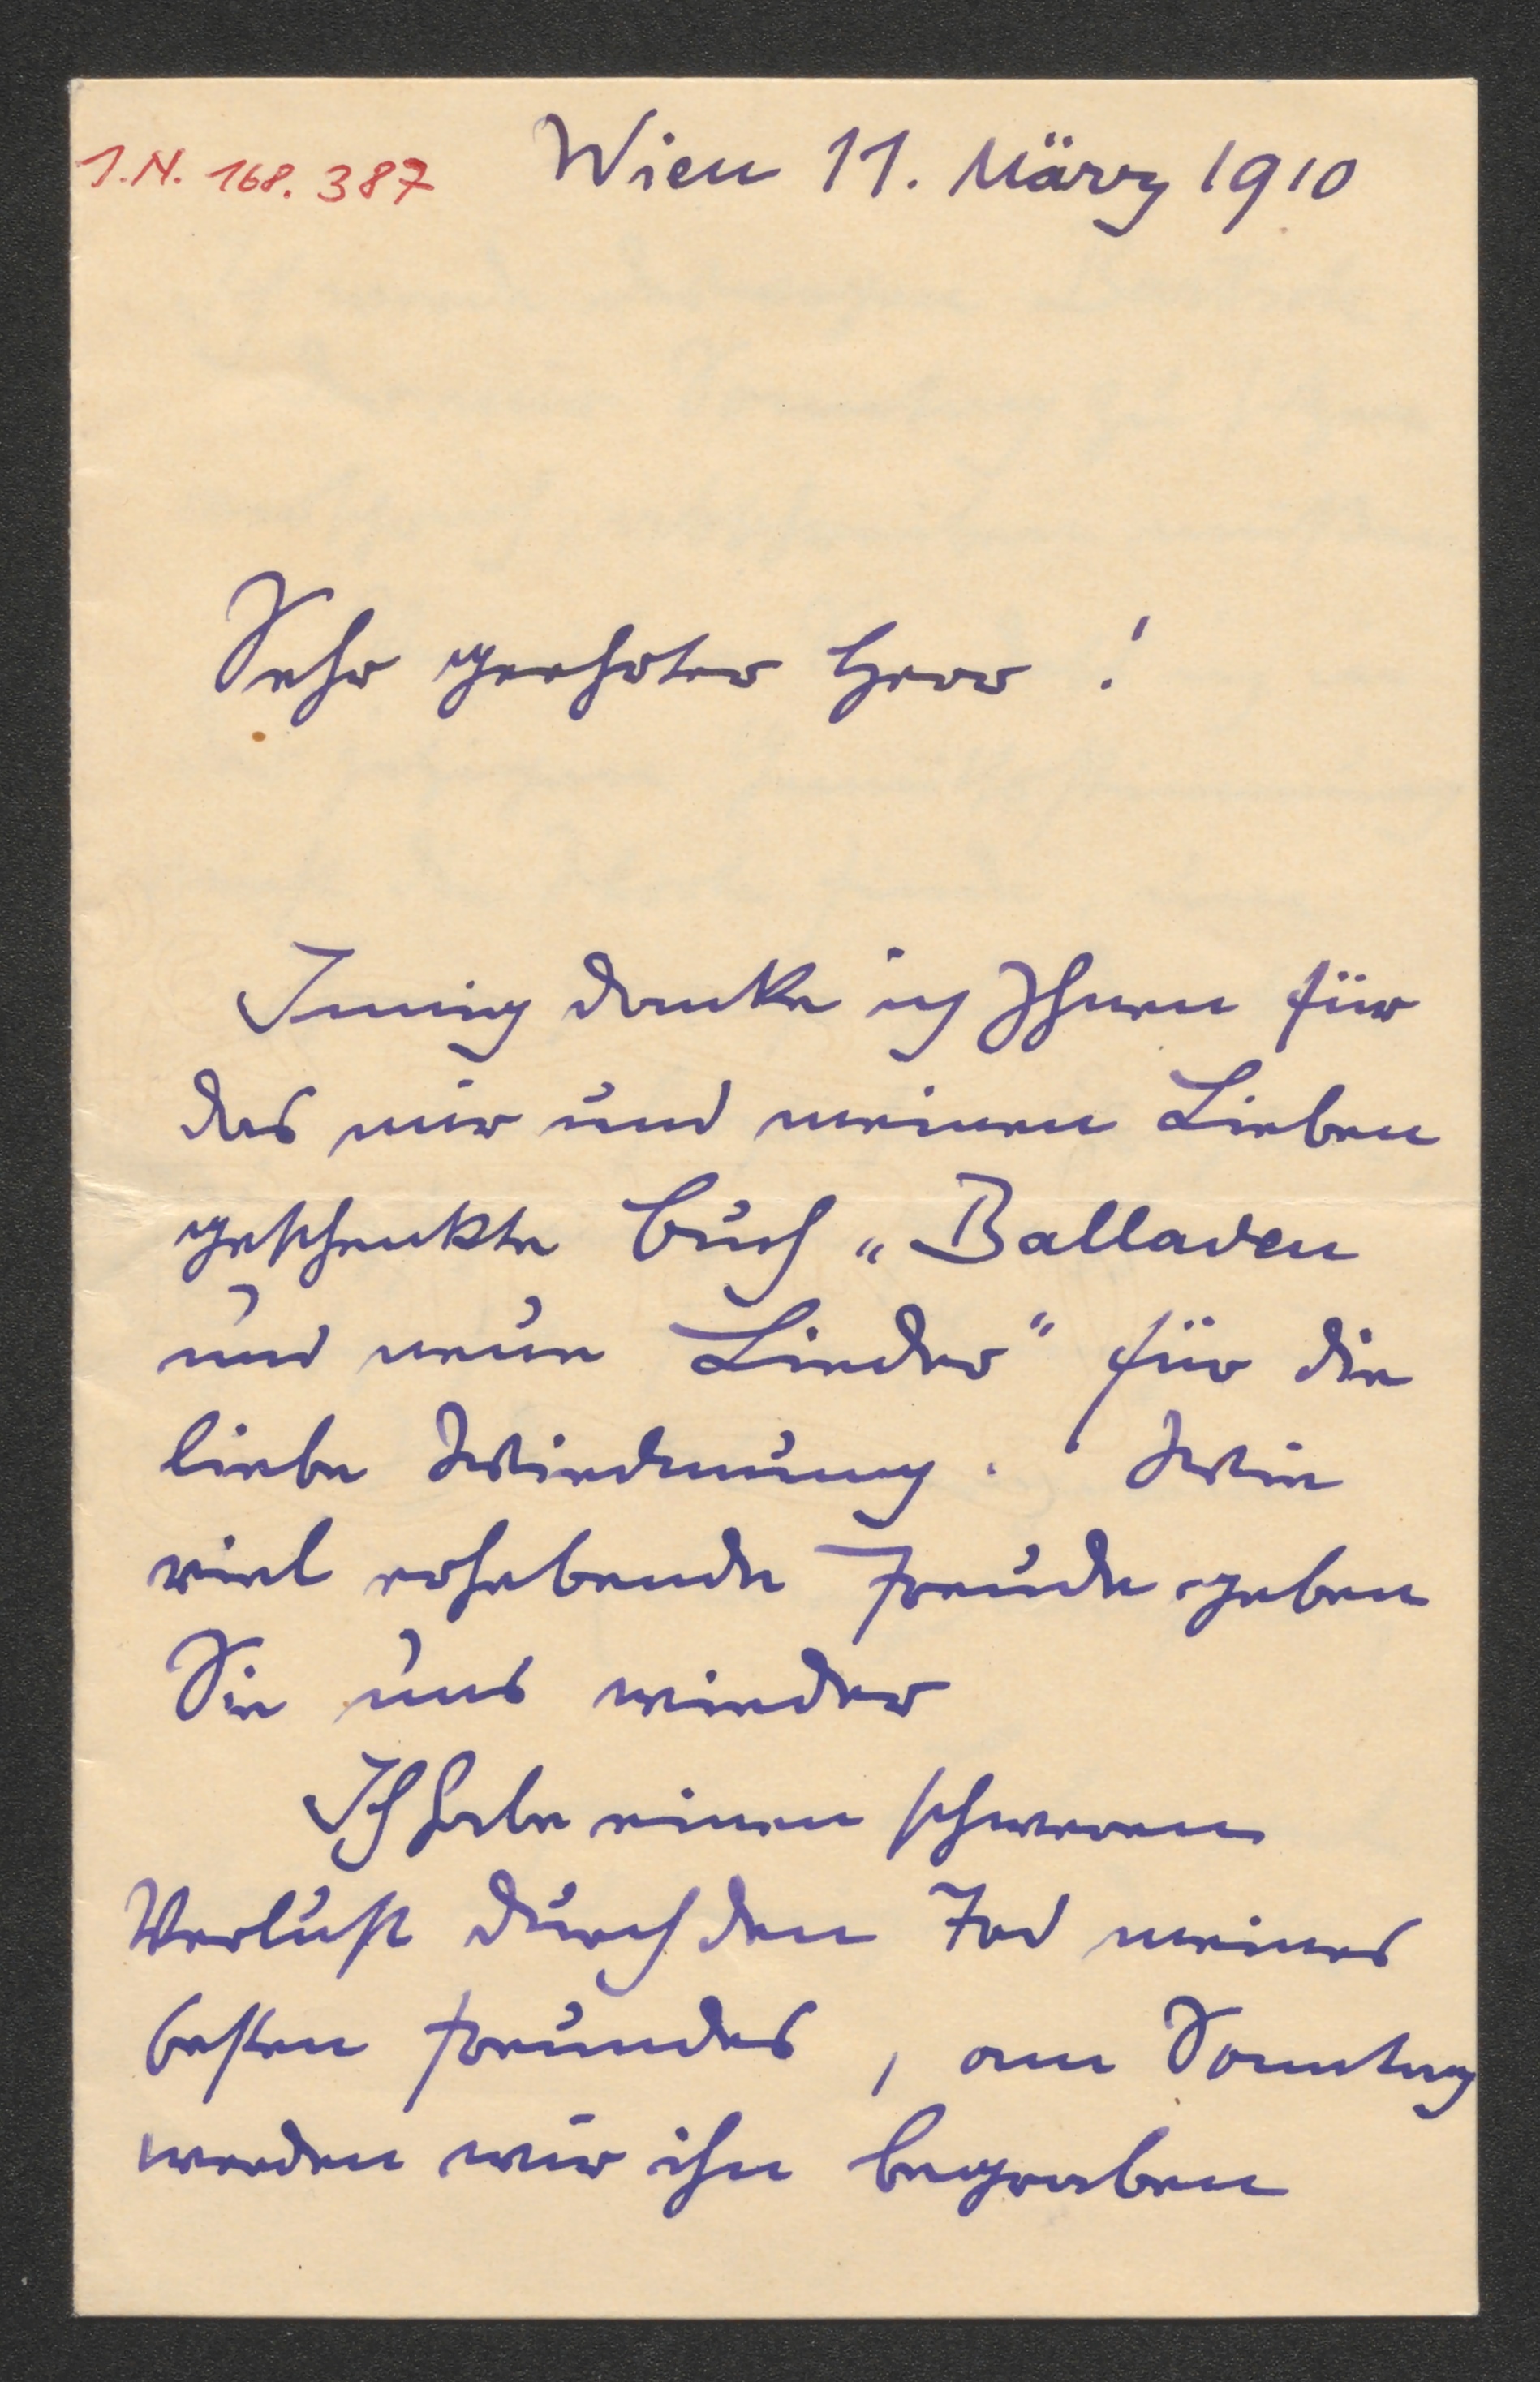 I.N. 168.387
Wien 11. März 1910
Sehr geehrter Herr !
Innig danke ich Ihnen für
das mir und meinen Lieben
geschenkte Buch „Balladen
und neue Lieder“ für die
liebe Widmung. Wie
viel erhebende Freude geben
Sie uns wieder
Ich habe einen schweren
Verlust durch den Tod meines
besten Freundes, am Sonntag
werden wir ihn begraben